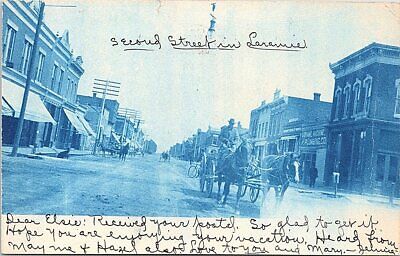 Second Street in Laramie
Dear Elsie: Received your postal. So glad to get it.
Hope you are enjoying your vacation. Heard from
Mayme & Hazel also. Love to you and Mary-